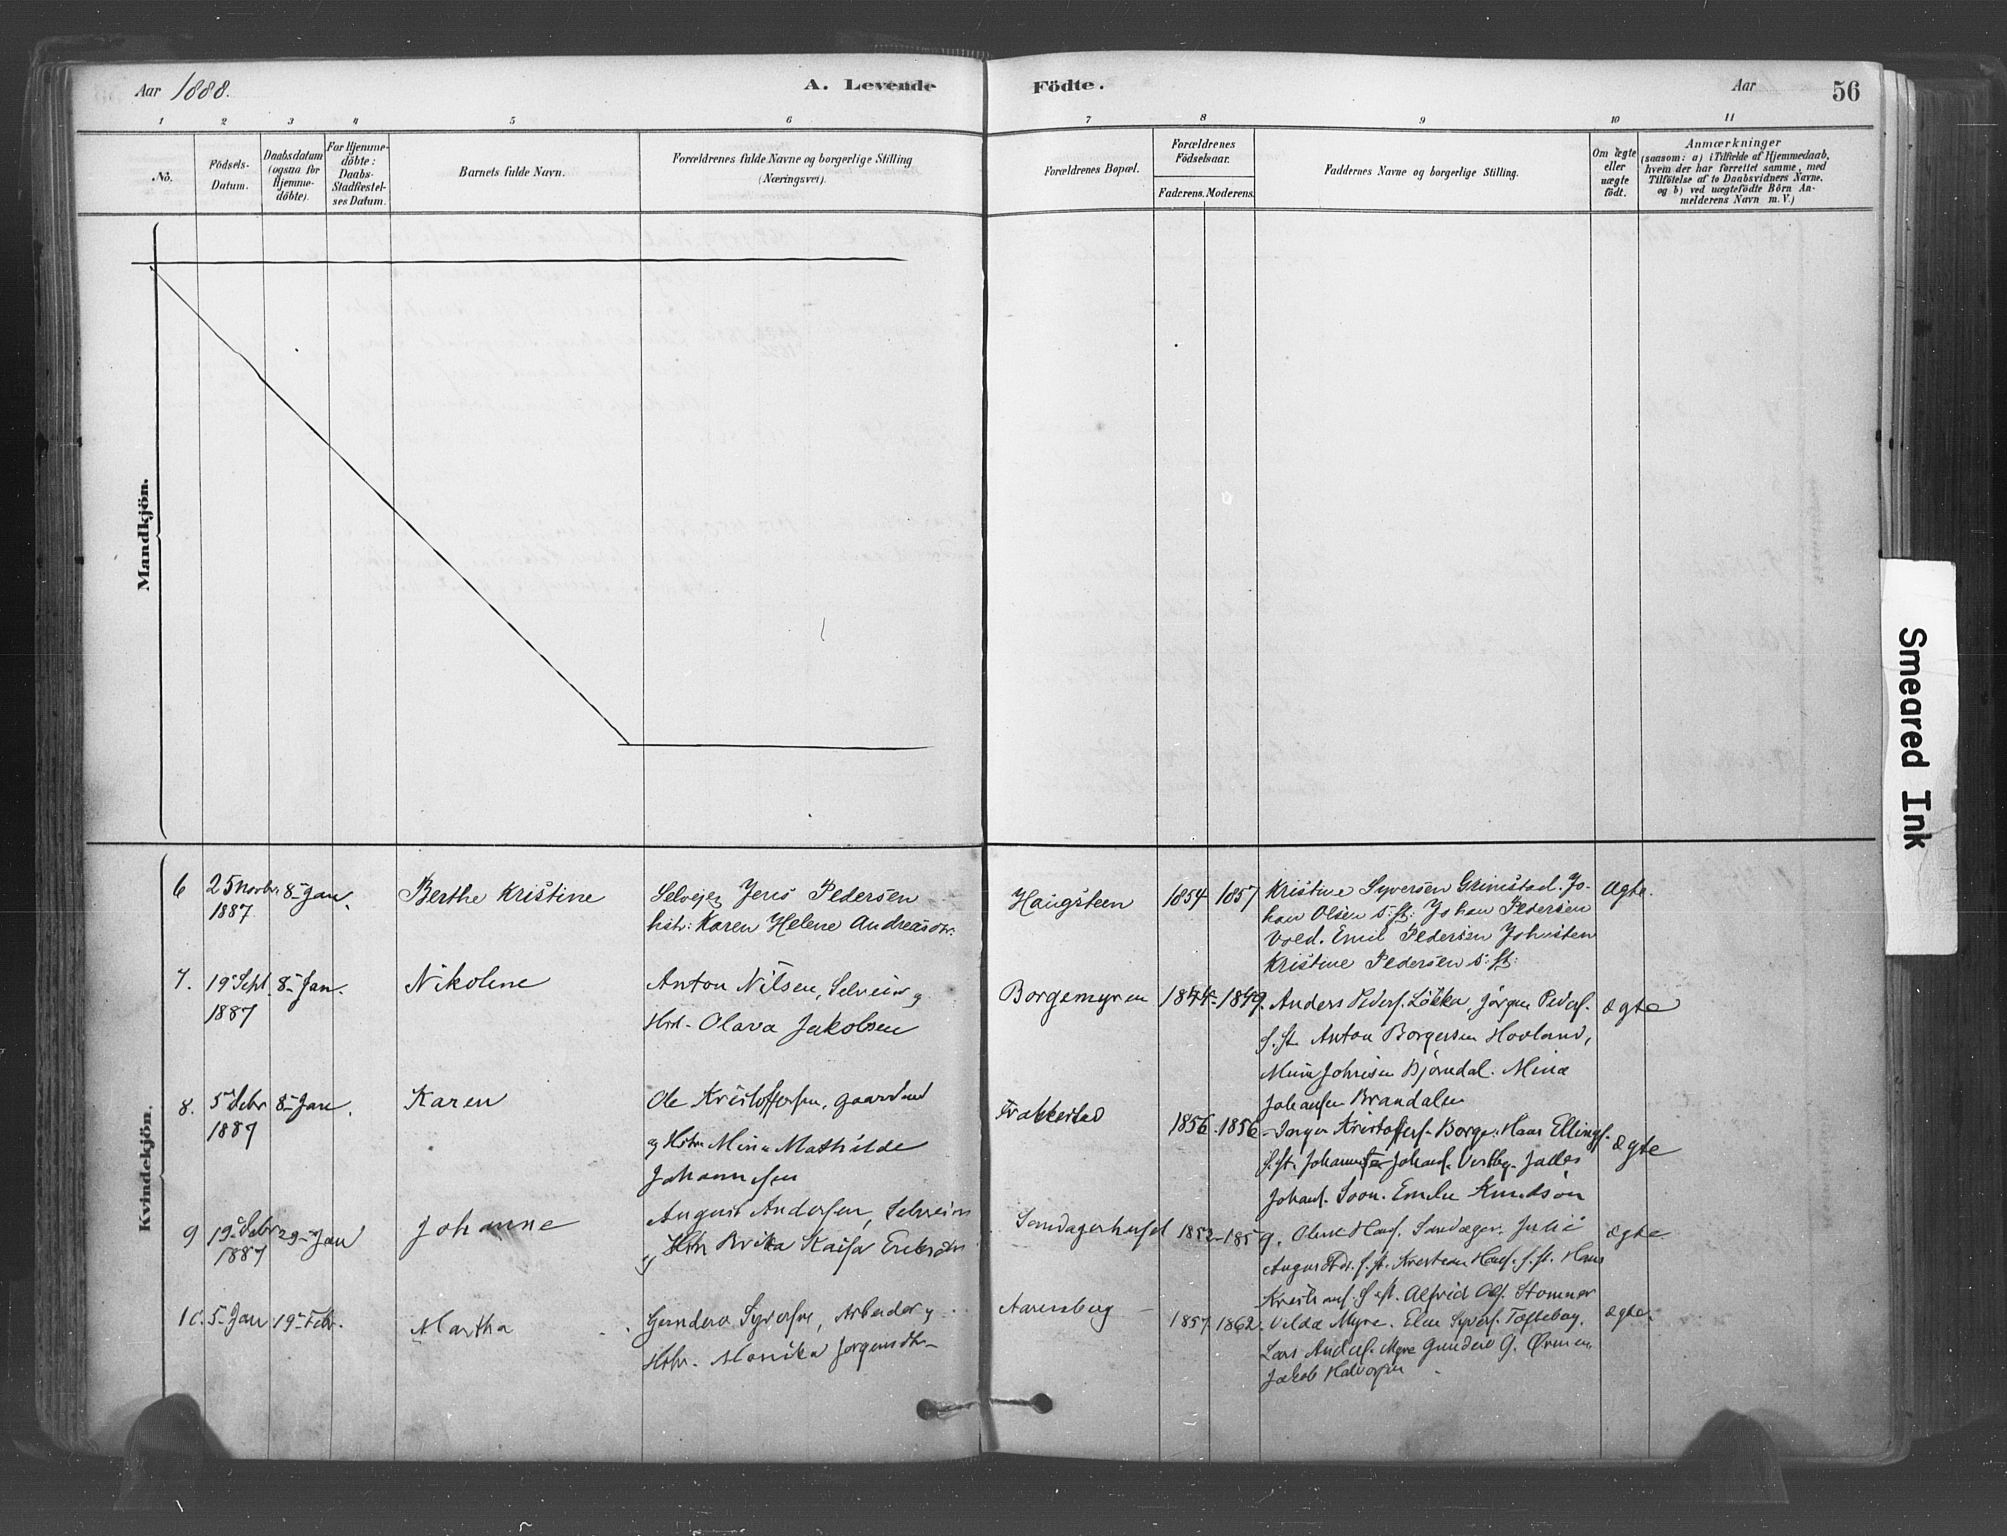 Aar 1888.
A. Levende
Födte.
Aar
56
1 2 3 4 5 6 7 8 9 10 11
No.
Födsels-
Datum.
Daabsdatum
(ogsaa for
Hjemme-
döbte).
For Hjemme-
döbte:
Daabs-
Stadfæstel-
ses Datum.
Barnets fulde Navn.
Forældrenes fulde Navne og borgerlige Stilling
(Næringsvei).
Forældrenes Bopæl.
Forældrenes
Födselsaar.
Faderens. Moderens.
Faddernes Navne og borgerlige Stilling.
Om ægte
eller
uægte
födt.
Anmærkninger
(saasom: a) i Tilfælde af Hjemmedaab,
hvem der har forrettet samme, med
Tilföielse af to Daabsvidners Navne,
og b) ved uægtefödte Börn An-
melderens Navn m. V.)
Mandkjön.
Kvindekjön.
6
25 Novbr.
1887
8 Jan.
Berthe Kristine
Selveier Jens Pedersen
hstr: Karen Helene Andreasdtr.
Haugsteen
1854
1857
Kristine Syversen Grimstad. Jo-
han Olsen s: st: Johan Pedersen
Vold. Emil Pedersen
Kristine Pedersen s: st:
ægte.
7.
19 Sept.
1887
8 Jan.
Nikoline
Anton Nilsen, Selveier og
Hstr. Olava Jakobsen
Borgemyren
1844
1849.
Anders Peders. Løkka, Jørgen Peders.
s. st. Anton Borgersen Hovland,
Johnsen Bjørndal. Mina
Johansen Brandalsn
ægte
8.
5 Debr
1887
8 Jan.
Karen
Ole Kristoffersen, Gaardmd
og Hstr. Mina Mathilde
Johannesen
Frakkestad
1856
1856
Inger Kristoffers. Borge. Hans Ellings.
s. st. Johans. Vestby.
Johans. Soon. Emilie Knudsön
ægte
9
19 Debr
1887
29 Jan
Johanne
August Andersen, Selveier
og Hstr Brita Kaisa Eriksdtr
Sandagerhuset
1852
1859.
Hans. Sandager. Julie
August s. st. Kristian Hans. s. st. Hans
s. st. Alfrid Ols. Stommer
ægte
10.
5 Jan
19 Febr.
Martha
Gundero Syversen, Arbeider og
Hstr. Monika Jørgensdtr
Aarensberg
1857
1862.
Vilda Myre. Elen Syvers. Toftebog.
Lars Anders. Myre Gundero G. Ørmen,
Jakob Halvorsen
ægte.
Smeared Ink